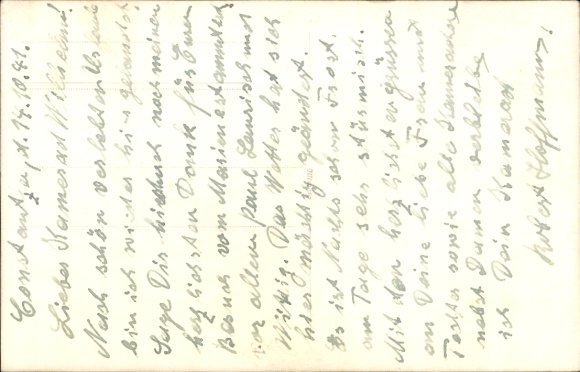 Constanza, d. 14.10.41.
Lieber Kamerad Wilhelm!
Nach schön verlebten Urlaub
bin ich wieder hier gelandet
Sage Dir hierdurch noch meinen
herzlichsten Dank für Euren
Besuch vom Marienestammtisch
vor allem Paul Laurisch und
Wittig. Das Wetter hat sich
hier mächtig geändert.
Es ist Nachts schon Frost.
am Tage sehr stürmisch.
Mit den herzlichsten grüssen
an Deine liebe Frau und
Tochter sowie alle Kameraden
nebst Damen verbleibe
ich Dein Kamerad
Hoffmann!